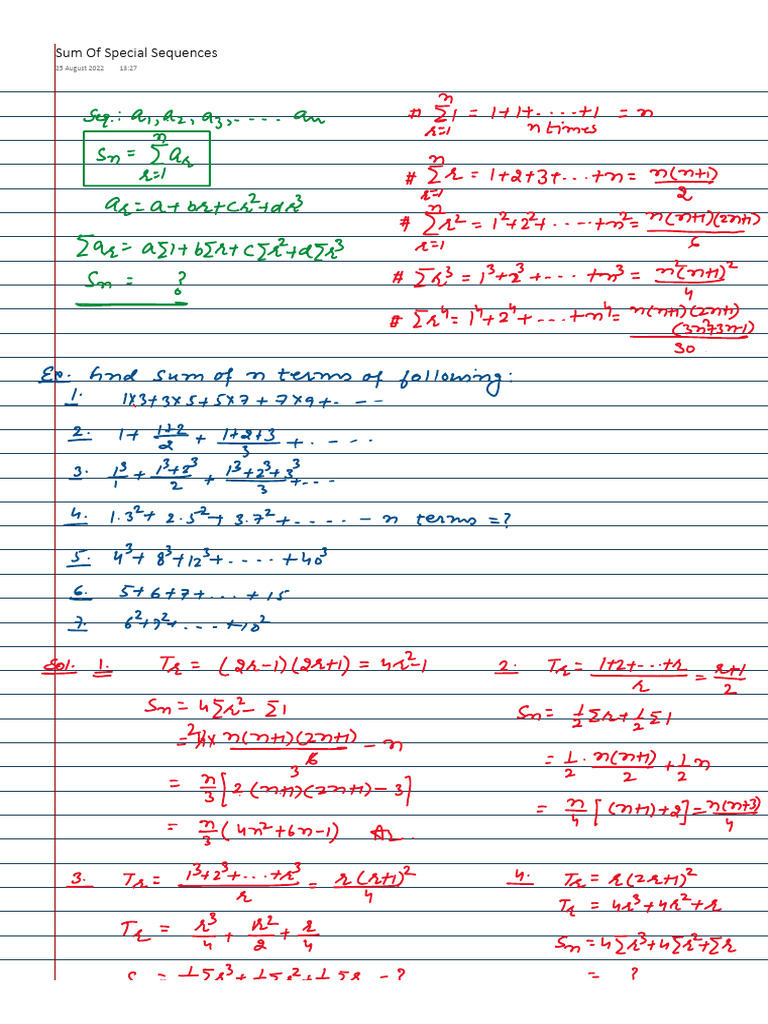 Sum Of Special Sequences
25 August 2022 13:27
Seq.: a₁, a₂, a₃, .... aₙ
Sₙ = Σ_{r=1}^{n} aᵣ
aᵣ = a + br + cr² + dr³
Σaᵣ = aΣ1 + bΣr + cΣr² + dΣr³
Sₙ = ?
# Σ_{r=1}^{n} 1 = 1+1+.....+1 = n
n times
# Σ_{r=1}^{n} r = 1+2+3+...+n = n(n+1)/2
# Σ_{r=1}^{n} r² = 1²+2²+.....+n² = n(n+1)(2n+1)/6
# Σr³ = 1³+2³+....+n³ = n²(n+1)²/4
# Σr⁴ = 1⁴+2⁴+...+n⁴ = n(n+1)(2n+1)(3n²+3n-1)/30
Ex. find sum of n terms of following:
1. 1×3+3×5+5×7+7×9+. --
2. 1 + (1+2)/2 + (1+2+3)/3 + .....
3. 1³/1 + (1³+2³)/2 + (1³+2³+3³)/3 +...
4. 1.3² + 2.5² + 3.7² + ..... - n terms = ?
5. 4³ + 8³ + 12³ + ..... + 40³
6. 5+6+7+...+15
7. 6²+7²+...+10²
Sol. 1. Tᵣ = (2r-1)(2r+1) = 4r²-1
Sₙ = 4Σr² - Σ1
= 2 4× n(n+1)(2n+1)/6 3 - n
= n/3 [2.(n+1)(2n+1) - 3]
= n/3 (4n²+6n-1) Ans
2. Tᵣ = (1+2+...+r)/r = (r+1)/2
Sₙ = 1/2 Σr + 1/2 Σ1
= 1/2 . n(n+1)/2 + 1/2 n
= n/4 [(n+1)+2] = n(n+3)/4
3. Tᵣ = (1³+2³+...+r³)/r = r(r+1)²/4
Tᵣ = r³/4 + r²/2 + r/4
S = 1/ Σr³ + 1/ Σr² + 1/ Σr = ?
4. Tᵣ = r(2r+1)²
Tᵣ = 4r³+4r²+r
Sₙ = 4Σr³+4Σr²+Σr
= ?